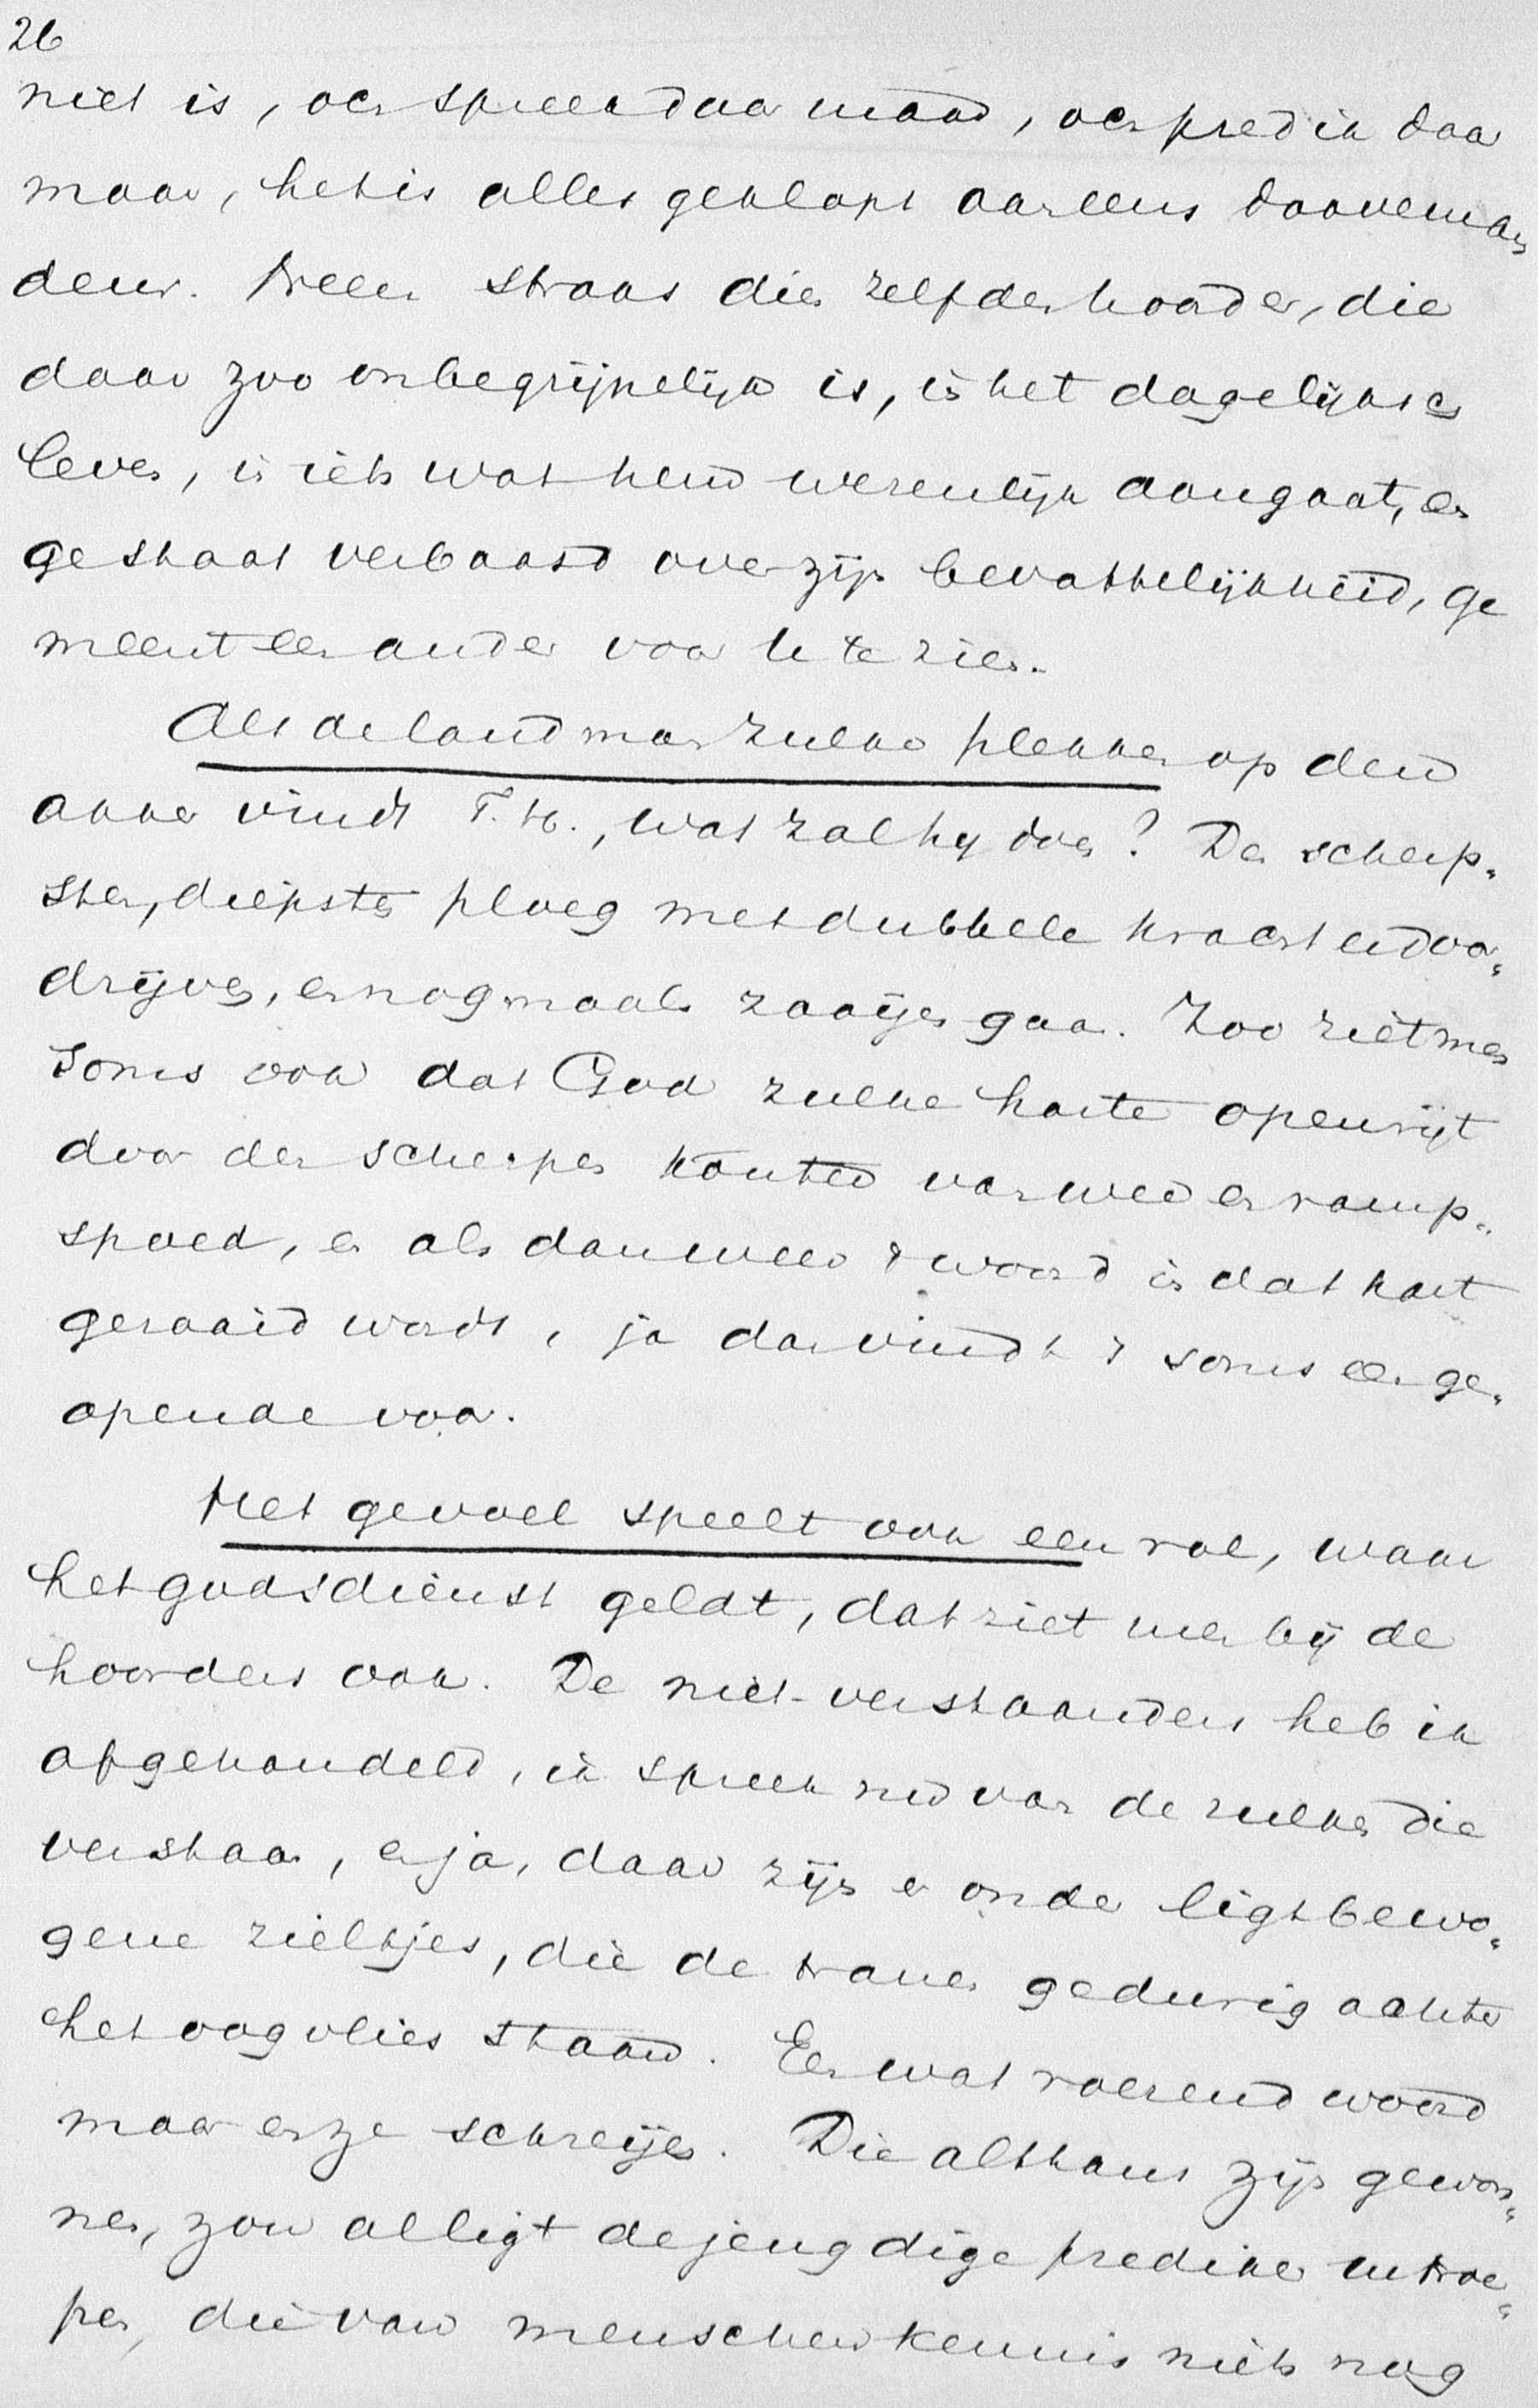 26
niet is, en spreek daar maar, en predik daar
maar, het is alles geklopt aan eens doovemans
deur. Treed straks die zelfde hoorder, die
daar zoo onbegrijpelijk is, in het dagelijksch
leven, in iets wat hem wezenlijk aangaat, en
ge staat verbaasd over zijn bevattelijkheid, ge
meent een ander voor U te zien.
Als de landman zulke plekken op den
akker vindt T. H., wat zal hij doen? De scherp-
sten, diepsten ploeg met dubbele kracht er door
drijven, en nogmaals zaaijen gaan. Zoo ziet men
soms ook dat God zulke harten openrijt
door den scherpen kouter van wee en ramp-
spoed, en als dan weer 't woord in dat hart
gezaaid wordt, ja dan vindt 't soms een ge-
opende voor.
Het gevoel speelt ook een rol, waar
het godsdienst geldt, dat ziet men bij de
hoorders ook. De niet-verstaanders heb ik
afgehandeld, ik spreek nu van de zulken die
verstaan, en ja, daar zijn er onder ligt bewo-
gene zieltjes, die de tranen gedurig achter
het oogvlies staan. Een wat roerend woord
maar en ze schreijen. Die althans zijn gewon-
nen, zou alligt de jeugdige prediker uitroe-
pen, die van menschenkennis niets nog